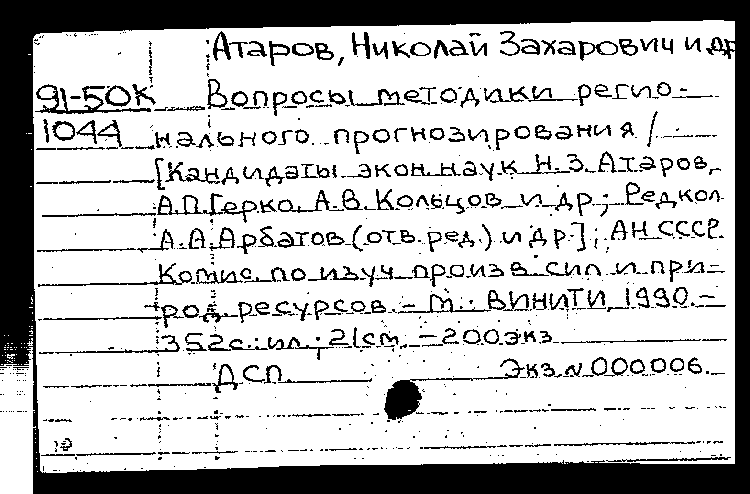 Атаров, Николай Захарович и др
91-50К Вопросы методики регио-
1044 нального прогнозирования /
[Кандидаты экон. наук Н.З. Атаров,
А.П. Герко, А.В. Кольцов и др.; Редкол
А.А. Арбатов (отв. ред.) и др.]; АН СССР.
Комис. по изуч произв. сил и при-
род. ресурсов. – М.: ВИНИТИ, 1990. –
352с.: ил.; 21см. – 200экз
ДСП. Экз № 000006.